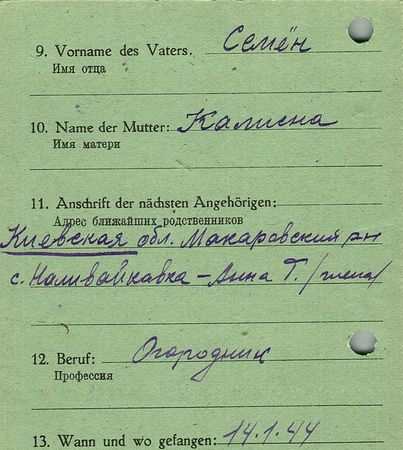 9. Vorname des Vaters. Семён
Имя отца
10. Name der Mutter: Калисна
Имя матери
11. Anschrift der nächsten Angehörigen:
Адрес ближайших родственников
Киевская обл. Макаровский рн
с. Наливайкавка – Анна Т. /
12. Beruf: Огородник
Профессия
13. Wann und wo gefangen: 14.1.44